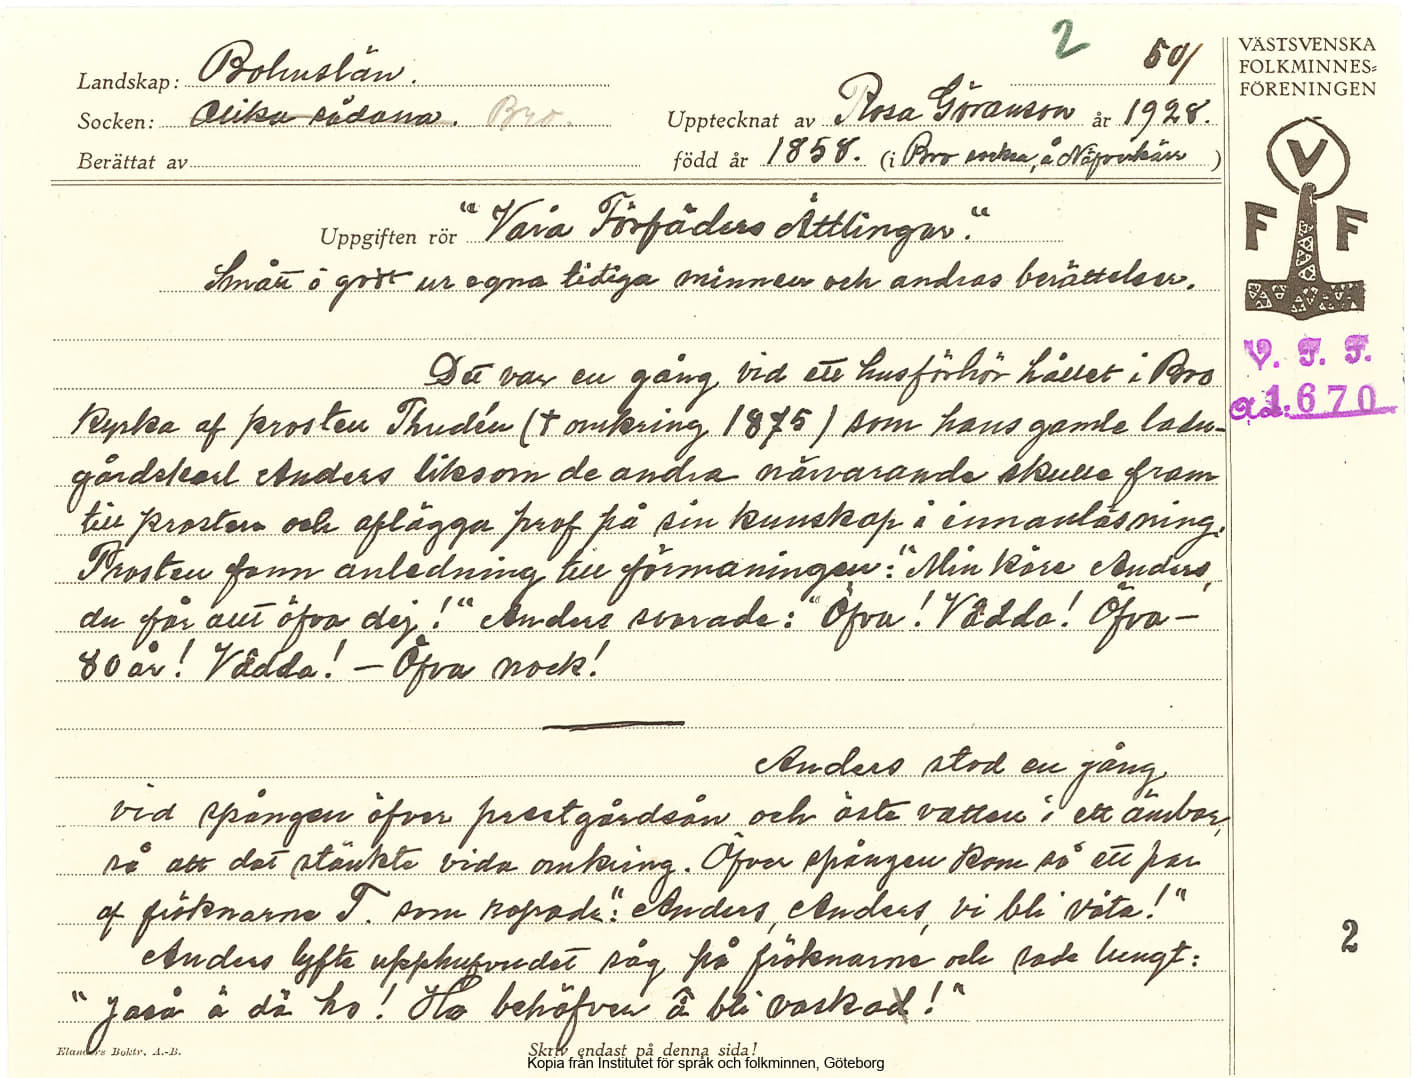 2
50/
VÄSTSVENSKA
FOLKMINNES=
FÖRENINGEN
Landskap: Bohuslän.
Socken: Olika sådana. Bro.
Upptecknat av Rosa Göranson år 1928.
Berättat av
född år 1858. (i Bro socken, å Näfverkärr)
V
F F
Uppgiften rör "Våra Förfäders Ättlingar."
Smått o godt ur egna tidiga minnen och andras berättelser.
V. F. F.
Acc: 1670
Det var en gång vid ett husförhör hållet i Bro
Kyrka af prosten Thudén († omkring 1875) som hans gamle ladu-
gårdskarl Anders liksom de andra närvarande skulle fram
till prosten och aflägga prof på sin kunskap i innanläsning.
Prosten fann anledning till förmaningen: "Min käre Anders,
du får att öfva dej!" Anders svarade: "Öfva! Vädda! Öfva –
80 år! Vädda! – Öfva nock!
Anders stod en gång
vid spången öfver prestgårdsån och öste vatten i ett ämbar,
så att det stänkte vida omkring. Öfver spången kom så ett par
af fröknarne T. som ropade": Anders, Anders, vi bli våta!"
Anders lyfte upp hufvudet såg på fröknarne och sade lungt:
"Jaså ä dä ho! Ho behöfver å bli vaskad!"
2
Elanders Boktr. A.-B.
Skriv endast på denna sida!
Kopia från Institutet för språk och folkminnen, Göteborg